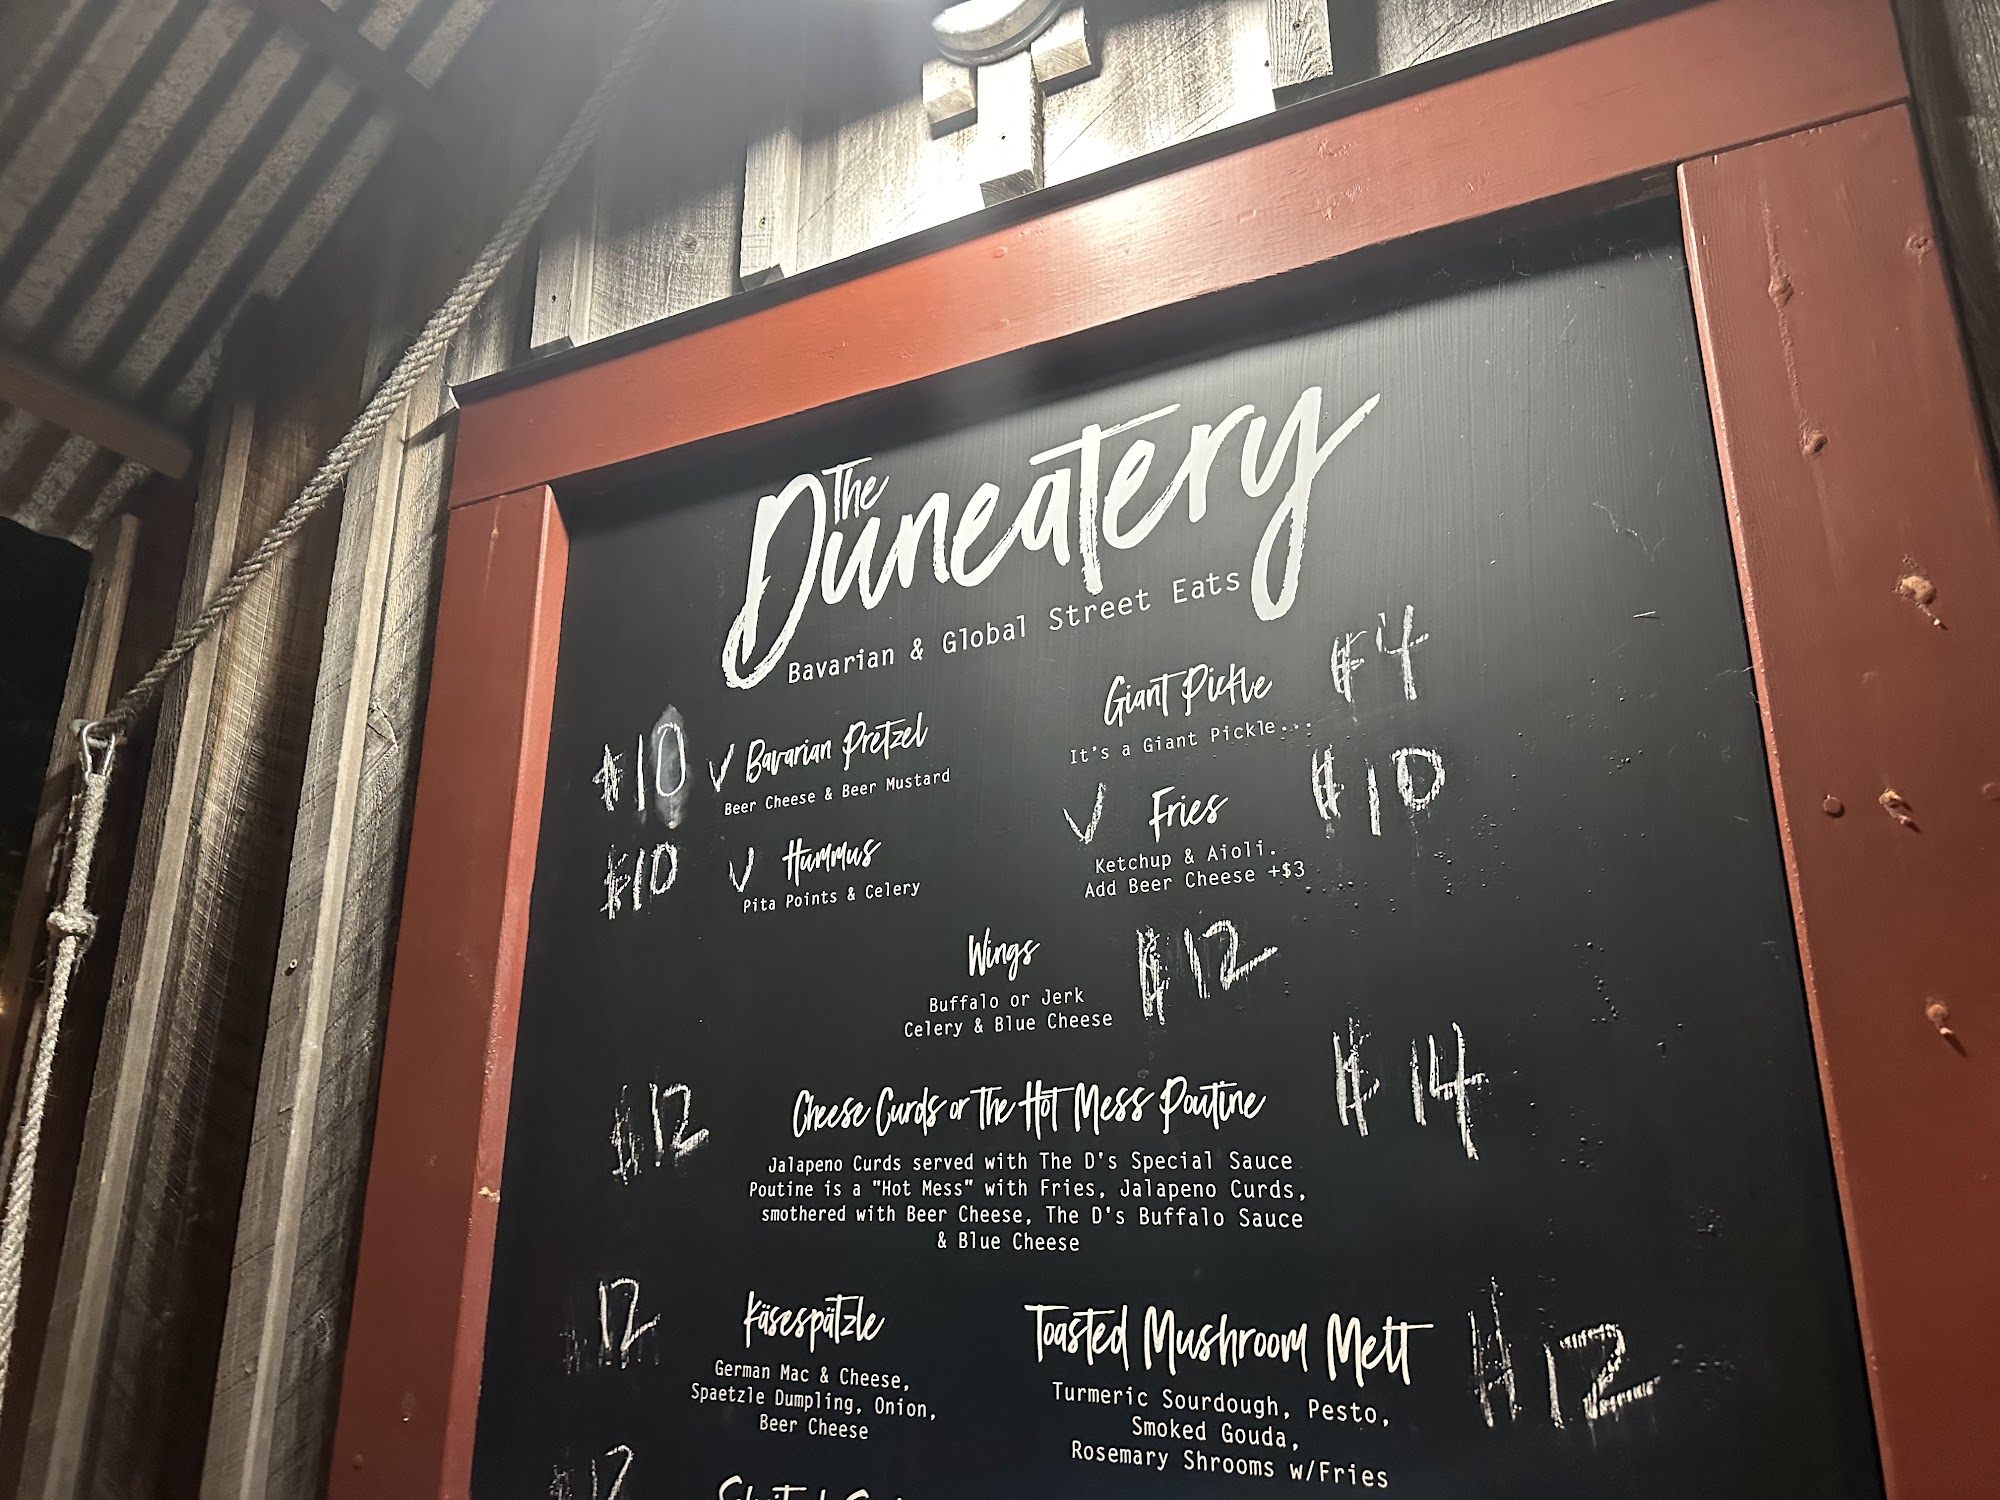 The
Duneatery
Bavarian & Global Street Eats
$10 ✓ Bavarian Pretzel
Beer Cheese & Beer Mustard
Giant Pickle $4
It's a Giant Pickle...
$10 ✓ Hummus
Pita Points & Celery
✓ Fries $10
Ketchup & Aioli.
Add Beer Cheese +$3
Wings $12
Buffalo or Jerk
Celery & Blue Cheese
$12 Cheese Curds or The Hot Mess Poutine $14
Jalapeno Curds served with The D's Special Sauce
Poutine is a "Hot Mess" with Fries, Jalapeno Curds,
smothered with Beer Cheese, The D's Buffalo Sauce
& Blue Cheese
$12 Käsespätzle
German Mac & Cheese,
Spaetzle Dumpling, Onion,
Beer Cheese
Toasted Mushroom Melt $12
Turmeric Sourdough, Pesto,
Smoked Gouda,
Rosemary Shrooms w/Fries
$12